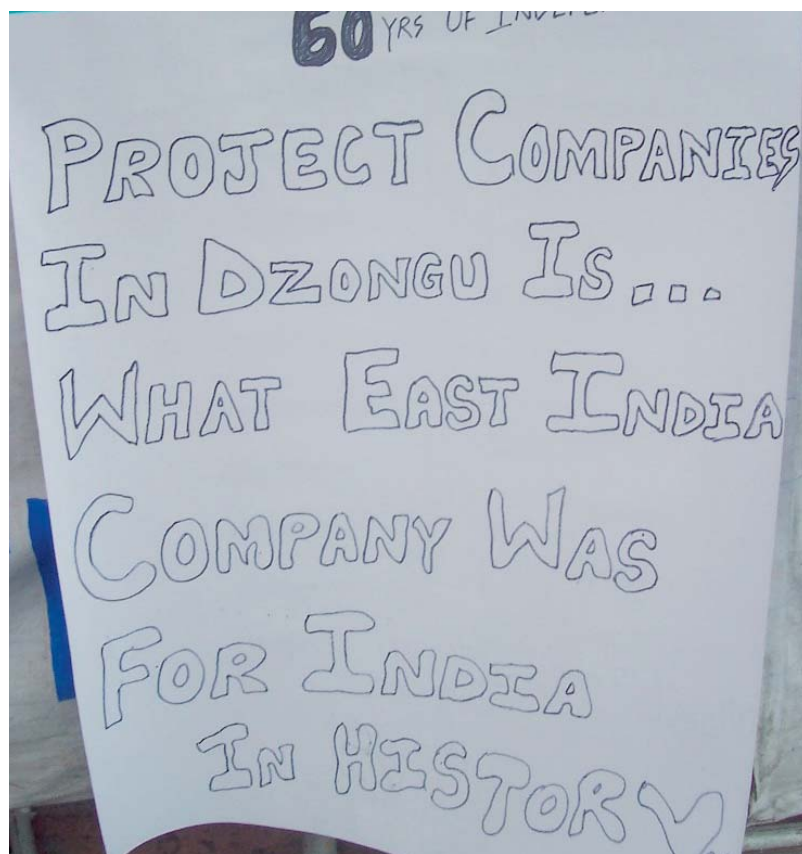 60 YRS OF
PROJECT COMPANIES
IN DZONGU IS...
WHAT EAST INDIA
COMPANY WAS
FOR INDIA
IN HISTORY